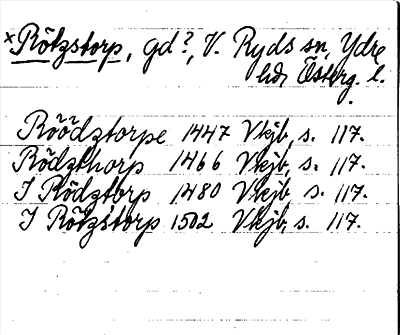 ×Rötzstorp, gd?, V. Ryds sn, Ydre
hd, Österg. l.
Röödztorpe 1447 Vkjb, s. 117.
Rödzthorp 1466 Vkjb, s. 117.
I Rödztorp 1480 Vkjb, s. 117.
I Rötzstorp 1502 Vkjb, s. 117.